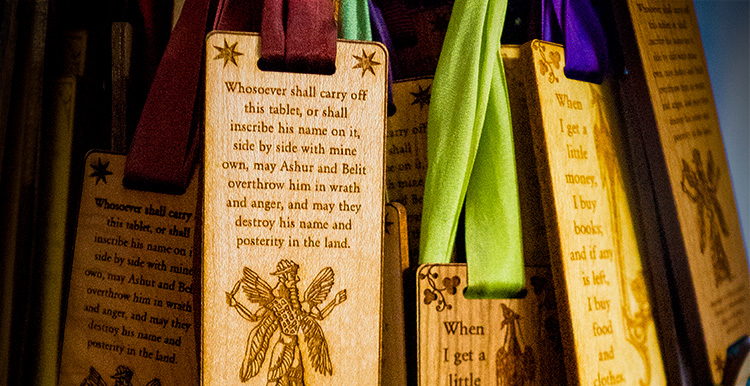 Whosoever shall carry off
this tablet, or shall
inscribe his name on it,
side by side with mine
own, may Ashur and Belit
overthrow him in wrath
and anger, and may they
destroy his name and
posterity in the land.
Whosoever shall carry
this tablet, or shall
inscribe his name on i
side by side with mine
own, may Ashur and Belit
overthrow him in wrath
and anger, and may they
destroy his name and
posterity in the land.
When
I get a
little
When
I get a
little
money,
I buy
books;
and if any
is left,
I buy
food
and
clothes.